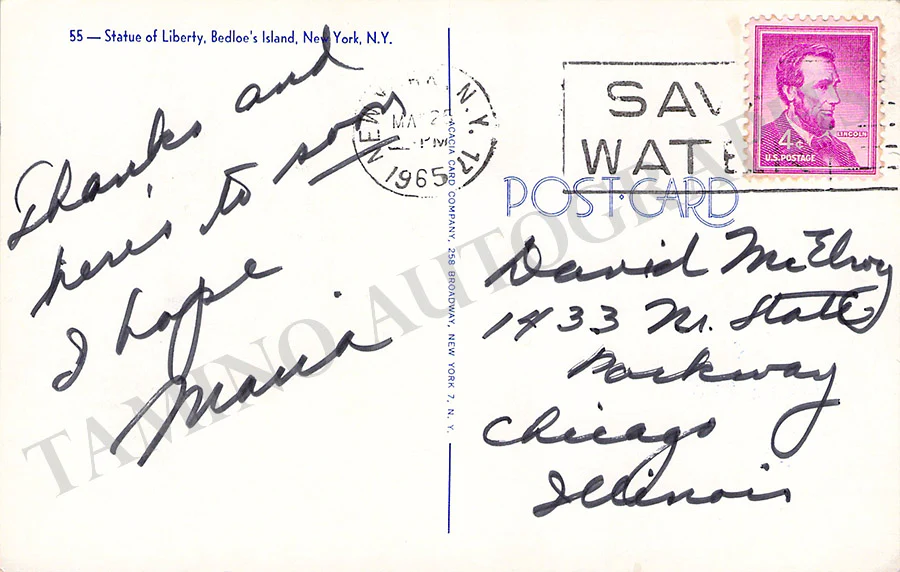 55 — Statue of Liberty, Bedloe's Island, New York, N.Y.
Thanks and
here's to soon
I hope
Maria
ACACIA CARD COMPANY, 258 BROADWAY, NEW YORK 7, N. Y.
NEW N.Y. 17
PM
1965
SAV
WATE
4¢
LINCOLN
U.S. POSTAGE
POST CARD
David McElroy
1433 N. State
Parkway
Chicago
Illinois
TAMINO AUTOGRAPHS